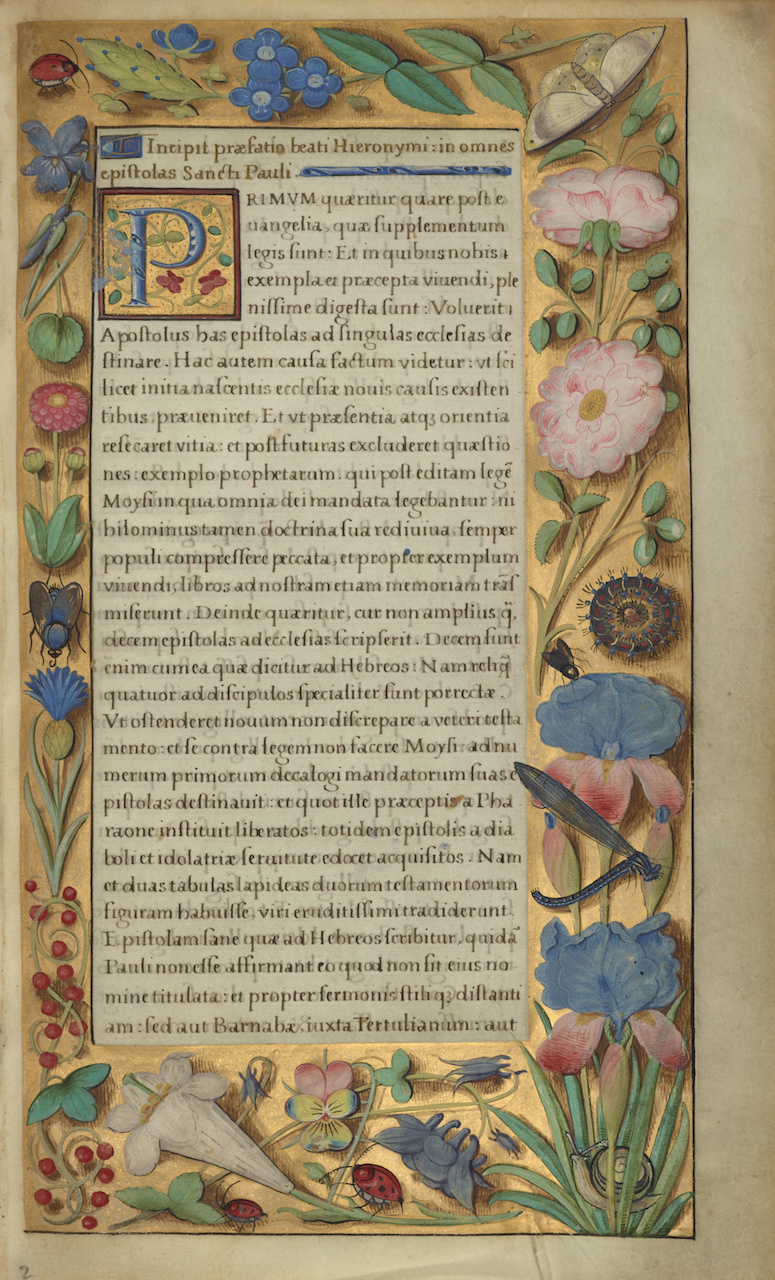 Incipit præfatio beati Hieronymi: in omnes
epistolas Sancti Pauli.
PRIMVM quæritur quare post e
uangelia, quæ supplementum
legis sunt: Et in quibus nobis
exempla et præcepta viuendi, ple
nissime digesta sunt: Voluerit
Apostolus has epistolas ad singulas ecclesias de
stinare. Hac autem causa factum videtur: vt sci
licet initia nascentis ecclesiæ nouis causis existen
tibus præueniret. Et vt præsentia atq; orientia
resecaret vitia: et post futuras excluderet quæstio
nes: exemplo prophetarum. qui post editam legē
Moysi in qua omnia dei mandata legebantur: ni
hilominus tamen doctrina sua rediuiua, semper
populi compressere peccata, et propter exemplum
viuendi, libros ad nostram etiam memoriam trāſ
miserunt. Deinde quæritur, cur non amplius q̃,
decem epistolas ad ecclesias scripserit. Decem sunt
enim cum ea quæ dicitur ad Hebreos: Nam reliq̃
quatuor ad discipulos specialiter sunt porrectæ.
Vt ostenderet nouum non discrepare a veteri testa
mento: et se contra legem non facere Moysi: ad nu
merum primorum decalogi mandatorum suas e
pistolas destinauit: et quot ille præceptis a Pha
raone instituit liberatos: totidem epistolis a dia
boli et idolatriæ seruitute edocet acquisitos. Nam
et duas tabulas lapideas duorum testamentorum
figuram habuisse, viri eruditissimi tradiderunt
Epistolam sane quæ ad Hebreos scribitur, quidā
Pauli non esse affirmant eo quod non sit eius no
mine titulata: et propter sermonis stiliq; distanti
am: sed aut Barnabæ, iuxta Tertulianum: aut
2